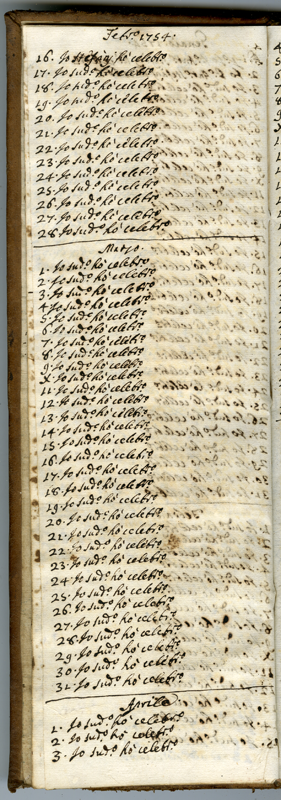 Febr.o 1754.
16. Io hò celebr.o
17. Io sud.o hò celebr.o
18. Io sud.o hò celebr.o
19. Io sud.o hò celebr.o
20. Io sud.o hò celebr.o
21. Io sud.o hò celebr.o
22. Io sud.o hò celebr.o
23. Io sud.o hò celebr.o
24. Io sud.o hò celebr.o
25. Io sud.o hò celebr.o
26. Io sud.o hò celebr.o
27. Io sud.o hò celebr.o
28. Io sud.o hò celebr.o
Marzo.
1. Io sud.o hò celebr.o
2. Io sud.o hò celebr.o
3. Io sud.o hò celebr.o
4. Io sud.o hò celebr.o
5. Io sud.o hò celebr.o
6. Io sud.o hò celebr.o
7. Io sud.o hò celebr.o
8. Io sud.o hò celebr.o
9. Io sud.o hò celebr.o
X. Io sud.o hò celebr.o
11. Io sud.o hò celebr.o
12. Io sud.o hò celebr.o
13. Io sud.o hò celebr.o
14. Io sud.o hò celebr.o
15. Io sud.o hò celebr.o
16. Io sud.o hò celebr.o
17. Io sud.o hò celebr.o
18. Io sud.o hò celebr.o
19. Io sud.o hò celebr.o
20. Io sud.o hò celebr.o
21. Io sud.o hò celebr.o
22. Io sud.o hò celebr.o
23. Io sud.o hò celebr.o
24. Io sud.o hò celebr.o
25. Io sud.o hò celebr.o
26. Io sud.o hò celebr.o
27. Io sud.o hò celebr.o
28. Io sud.o hò celebr.o
29. Io sud.o hò celebr.o
30. Io sud.o hò celebr.o
31. Io sud.o hò celebr.o
Aprile
1. Io sud.o hò celebr.o
2. Io sud.o hò celebr.o
3. Io sud.o hò celebr.o